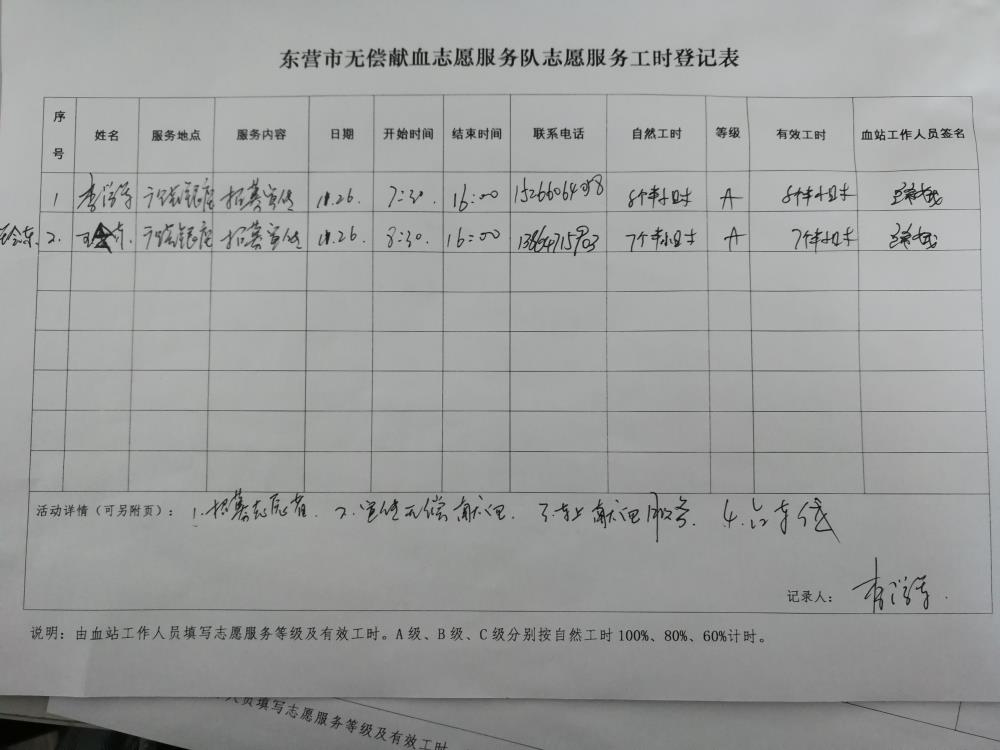 东营市无偿献血志愿服务队志愿服务工时登记表
序号 姓名 服务地点 服务内容 日期 开始时间 结束时间 联系电话 自然工时 等级 有效工时 血站工作人员签名
1 广饶银座 招募宣传 11.26. 7:30. 16:00 8个半小时 A 8个半小时
2. 广饶银座 招募宣传 11.26. 8:30. 16:00 7个半小时 A 7个半小时
活动详情（可另附页）： 1.招募志愿者. 2.宣传无偿献血. 3.车上献血服务. 4.
记录人：
说明：由血站工作人员填写志愿服务等级及有效工时。A级、B级、C级分别按自然工时100%、80%、60%计时。
人员填写志愿服务等级及有效工时